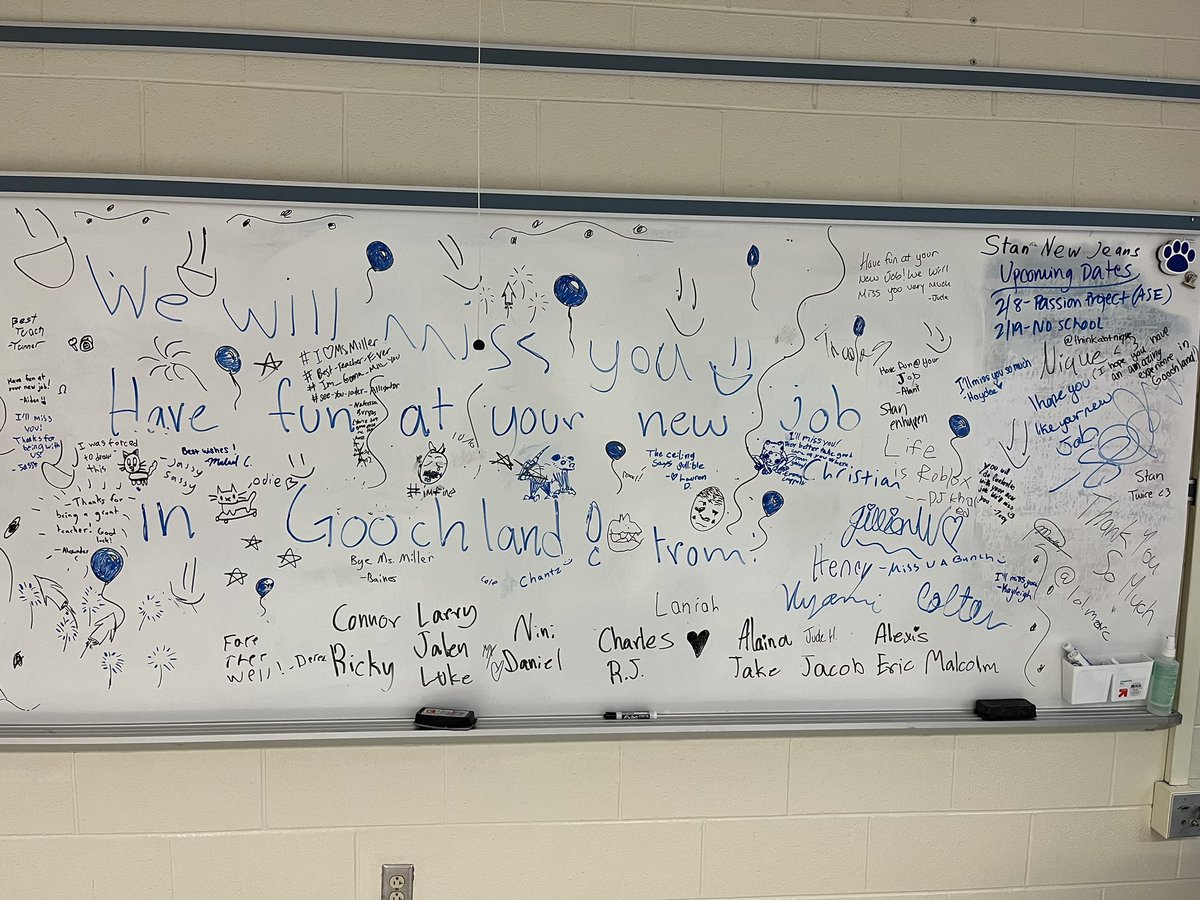 We will miss you
Have fun at your new job
in Goochland
from:
Stan New Jeans
Upcoming Dates
2/8-Passion Project (ASE)
2/19-No School
Have fun at your
New Job! We will
Miss you very much
-Jude
@thinkabtnique
Nique <3
(I hope you have
an amazing
experience in
Goochland)
I'll miss you so much
-Haydee
I hope you
like your new
Job
Have fun @ your
Job
-Alani
Stan
enhypen
Life
is Roblox
--DJ Khaled
Stan
Twice <3
Thank You
So Much
@lolmarc
Best
Teach
-Tanner
Have fun at
your new job!
I'll miss
you!
Thanks for
being with
us!
#I♡MsMiller
#Best-Teacher-Ever
#Im_Gonna_Miss_You
#see-you-later-Alligator
I was forced
to draw
this
-Jassy
Sassy
Best wishes!
Jodie
-Thanks for-
being a great
teacher! Good
luck!
-Alexander
#imfine
10/10
The ceiling
says gullible
-♡Lauren
D.
I'll miss you!
Christian
Jillian W♡
Henry-Miss U A Bunch
I'll miss you
-Kayleigh
Colton
Bye Ms. Miller
-Baines
Cole
Chantz
Laniah
Fare
ther
well!
-Derek
Connor
Ricky
Larry
Jalen
Luke
Nini
Daniel
Charles
R.J.
Alaina
Jude H.
Alexis
Jake
Jacob
Eric
Malcolm